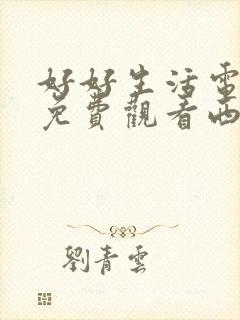 好好生活電
免費觀看西
劉青雲